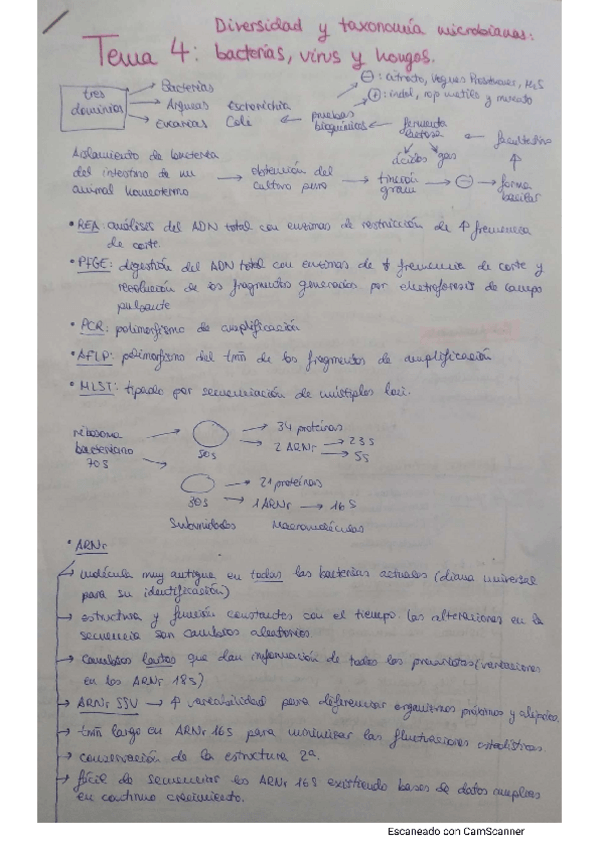 Diversidad y taxonomía microbianas:
Tema 4: bacterias, virus y hongos.
tres dominios
Bacterias
Arqueas
Eucarias
Escherichia Coli
pruebas bioquímicas
⊖: citrato, Voges Proskauer, H₂S
⊕: indol, rojo metilo y
fermenta lactosa
ácidos gas
facultativo
Aislamiento de bacteria
del intestino de un
animal homeotermo
obtención del
cultivo puro
tinción
gram
⊖
forma
bacilar
• REA: análisis del ADN total con enzimas de restricción de ↑ frecuencia
de corte.
• PFGE: digestión del ADN total con enzimas de ↓ frecuencia de corte y
resolución de los fragmentos generados por electroforesis de campo
pulsante
• PCR: polimorfismo de amplificación
• AFLP: polimorfismo del tmñ de los fragmentos de amplificación
• MLST: tipado por secuenciación de múltiples loci.
ribosoma
bacteriano
70S
50S
34 proteínas
2 ARNr → 23S
→ 5S
30S
21 proteínas
1 ARNr → 16S
Subunidades Macromoléculas
• ARNr
→ molécula muy antigua en todas las bacterias actuales (diana universal
para su identificación)
→ estructura y función constantes con el tiempo. Las alteraciones en la
secuencia son cambios aleatorios.
→ Cambios lentos que dan información de todos los procariotas (variaciones
en los ARNr 18S)
→ ARNr SSU → ↑ variabilidad para diferenciar organismos próximos y alejados.
→ tmñ largo en ARNr 16S para minimizar las fluctuaciones estadísticas.
→ conservación de la estructura 2ª.
→ fácil de secuenciar es ARNr 16S existiendo bases de datos amplias
en continuo crecimiento.
Escaneado con CamScanner